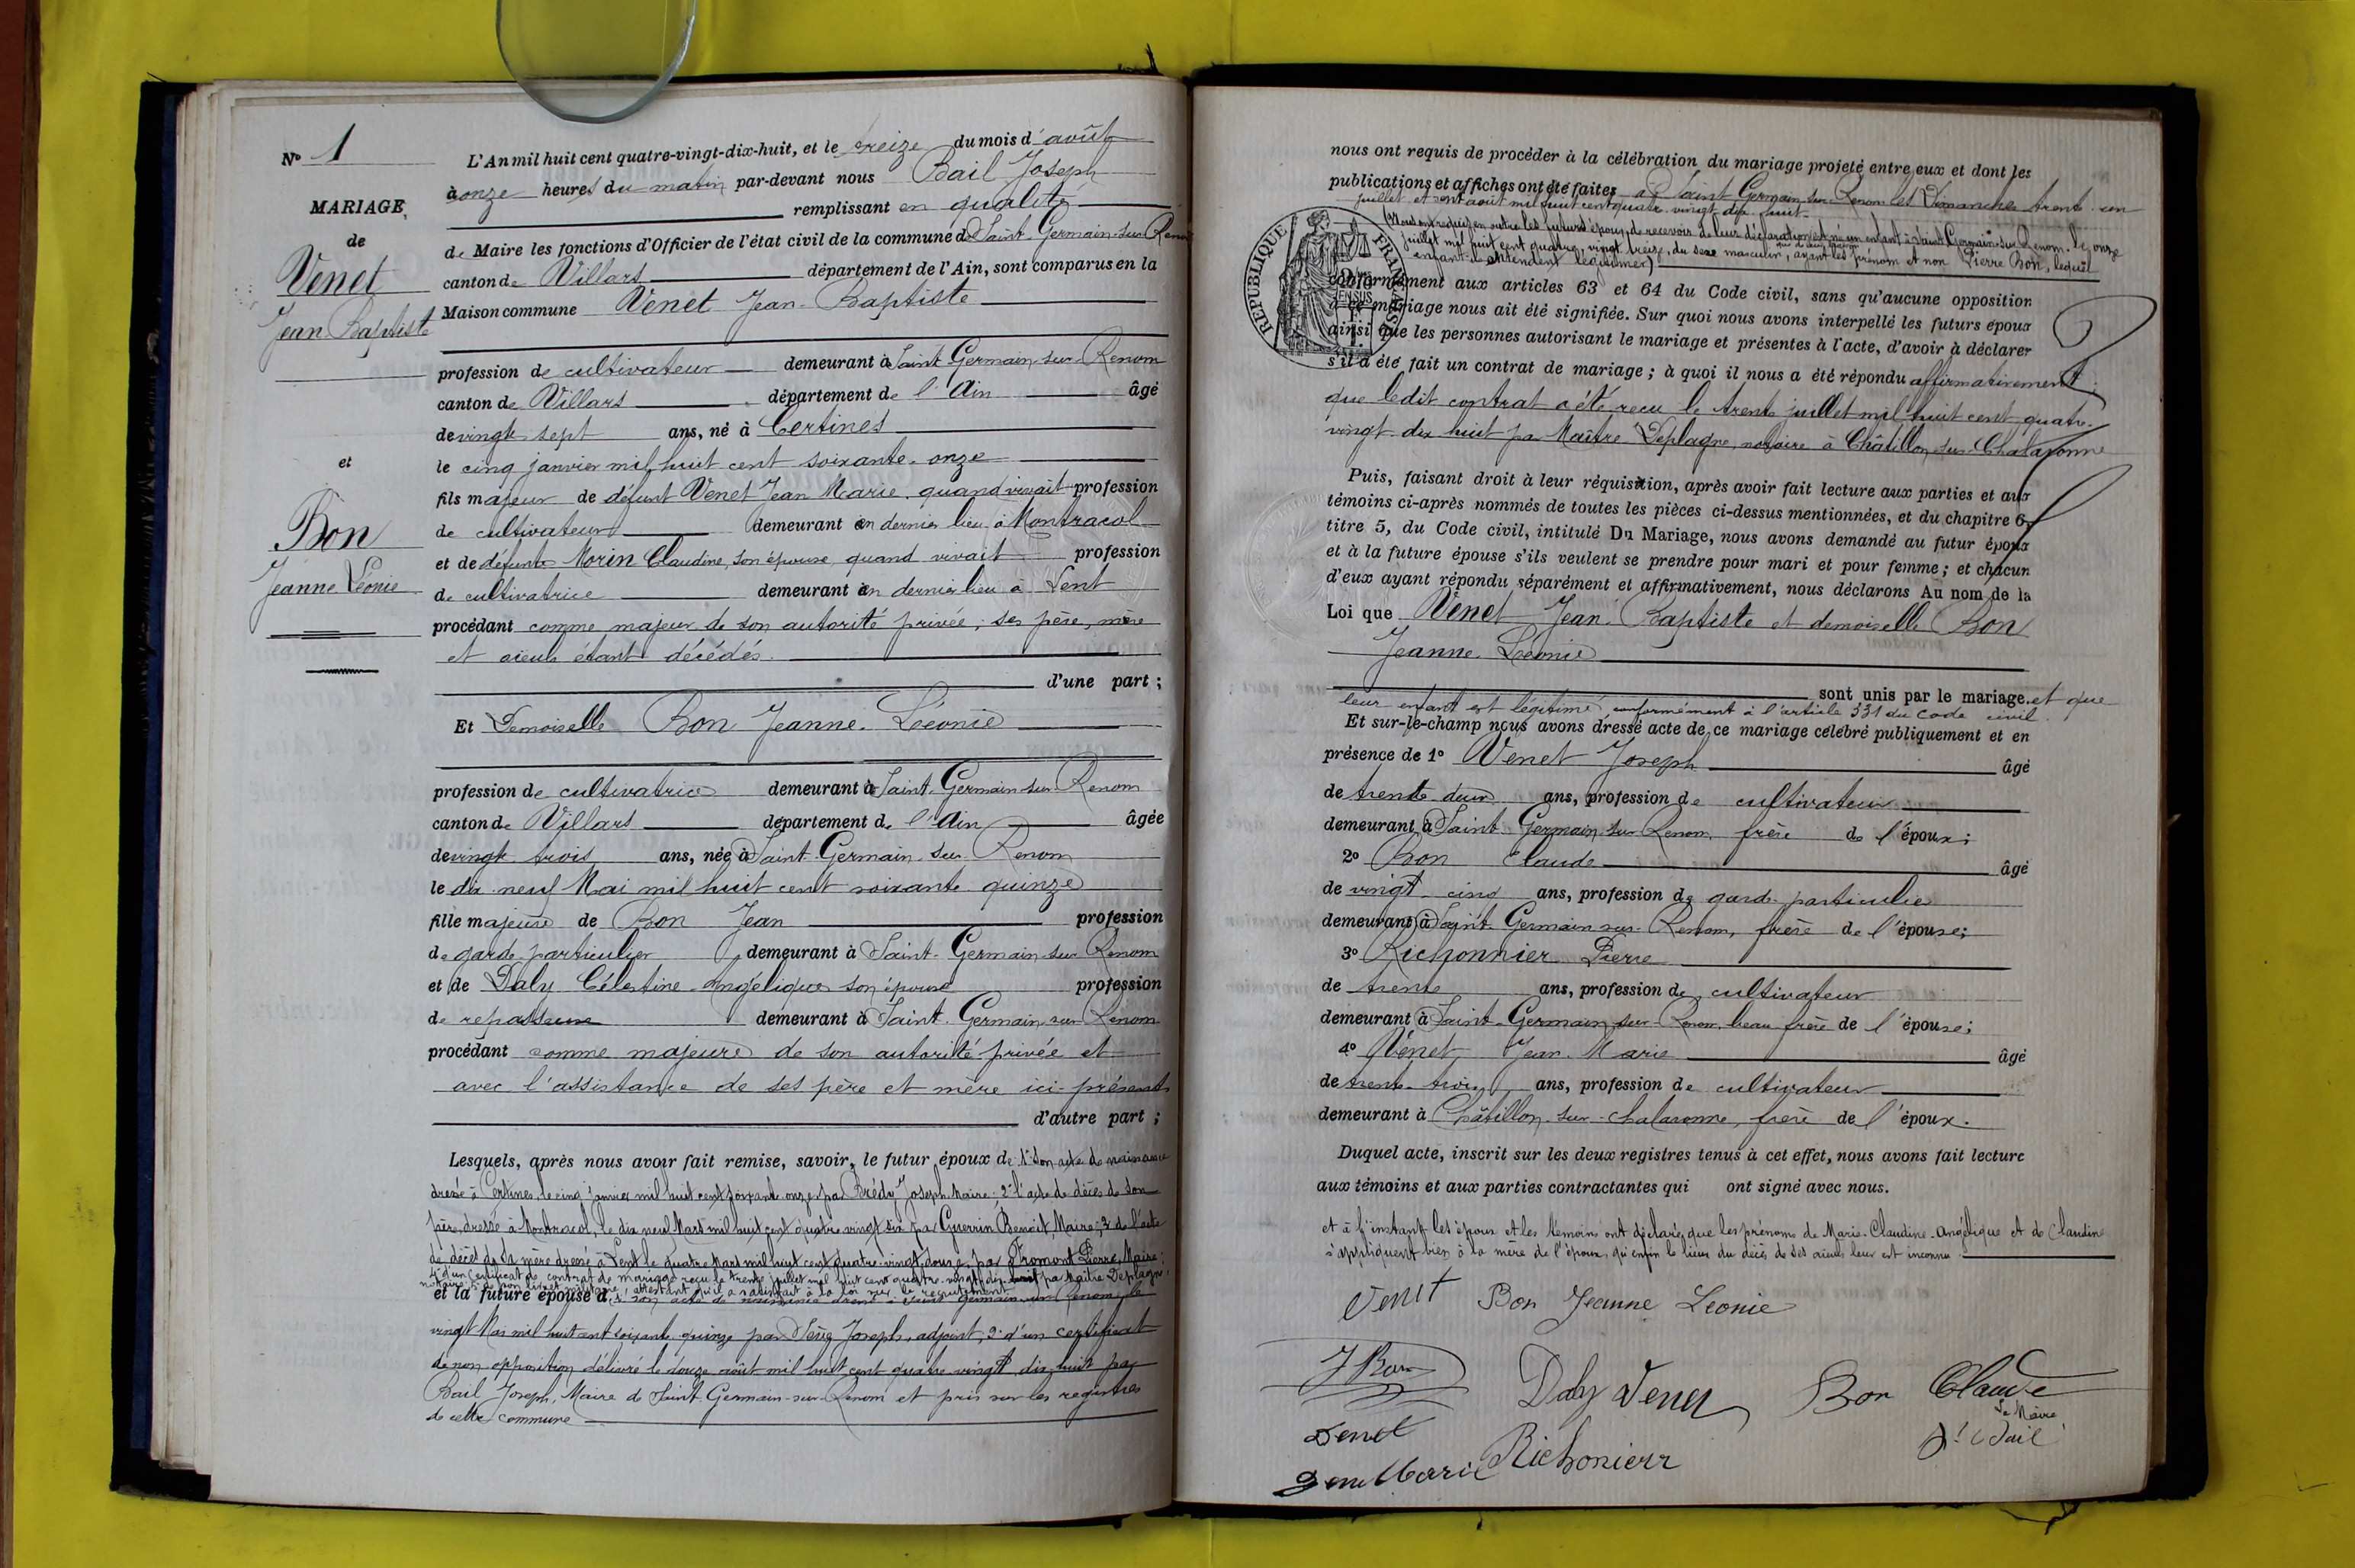 N° 1
MARIAGE
de
Venet
Jean Baptiste
et
Bon
Jeanne Léonie
L'An mil huit cent quatre-vingt-dix-huit, et le treize du mois d'août
à onze heures du matin par-devant nous Bail Joseph
remplissant en qualité
de Maire les fonctions d'Officier de l'état civil de la commune de Saint-Germain-sur-Renom
canton de Villars département de l'Ain, sont comparus en la
Maison commune Venet Jean-Baptiste
profession de cultivateur demeurant à Saint Germain-sur-Renom
canton de Villars département de l'Ain âgé
de vingt sept ans, né à Certines
le cinq janvier mil huit cent soixante-onze
fils majeur de défunt Venet Jean Marie, quand vivait profession
de cultivateur demeurant en dernier lieu à Montracol
et de défunte Morin Claudine, son épouse, quand vivait profession
de cultivatrice demeurant en dernier lieu à Lent
procédant comme majeur de son autorité privée, ses père, mère
et aieuls étant décédés.
d'une part ;
Et Demoiselle Bon Jeanne-Léonie
profession de cultivatrice demeurant à Saint-Germain-sur-Renom
canton de Villars département de l'Ain âgée
de vingt trois ans, née à Saint-Germain-sur-Renom
le dix-neuf Mai mil huit cent soixante quinze
fille majeure de Bon Jean profession
de garde particulier demeurant à Saint-Germain-sur-Renom
et de Daly Célestine-Angélique son épouse profession
de repasseuse demeurant à Saint-Germain-sur-Renom
procédant comme majeure de son autorité privée et
avec l'assistance de ses père et mère ici présents
d'autre part ;
Lesquels, après nous avoir fait remise, savoir, le futur époux de 1° Son acte de naissance
dressé à Certines, le cinq janvier mil huit cent soixante onze par Brédy Joseph Maire ; 2° l'acte de décès de son
père, dressé à Montracol, le dix neuf Mars mil huit cent quatre vingt six par Guerrin Benoit, Maire ; 3° de l'acte
de décès de sa mère dressé à Lent le quatre Mars mil huit cent quatre-vingt douze, par Fromont Pierre, Maire ;
4° d'un certificat de contrat de mariage reçu le trente juillet mil huit cent quatre-vingt-dix-huit par Maître Deplagne,
notaire 5° de son livret militaire, attestant qu'il a satisfait à la loi sur le recrutement
et la future épouse d 1° son acte de naissance dressé à Saint Germain-sur-Renom, le
vingt Mai mil huit cent soixante-quinze par Joseph, adjoint, 2° d'un certificat
de non opposition délivré le douze août mil huit cent quatre vingt dix-huit par
Bail Joseph, Maire de Saint-Germain-sur-Renom et pris sur les registres
de cette commune
nous ont requis de procéder à la célébration du mariage projeté entre eux et dont les
publications et affiches ont été faites à Saint Germain-sur-Renom les Dimanches trente-un
juillet et sept août mil huit cent quatre-vingt-dix-huit.
(Nous ont requis en outre les futurs époux, de recevoir de leur déclaration est né un enfant à Saint Germain-sur-Renom, le onze
juillet mil huit cent quatre-vingt treize, du sexe masculin, ayant les prénom et nom Pierre Bon, lequel
enfant ils entendent légitimer)
RÉPUBLIQUE FRANÇAISE
conformément aux articles 63 et 64 du Code civil, sans qu'aucune opposition
à ce mariage nous ait été signifiée. Sur quoi nous avons interpellé les futurs époux
ainsi que les personnes autorisant le mariage et présentes à l'acte, d'avoir à déclarer
s'il a été fait un contrat de mariage ; à quoi il nous a été répondu affirmativement
que ledit contrat a été reçu le trente juillet mil huit cent quatre-
vingt-dix huit par Maître Deplagne, notaire à Châtillon-sur-Chalaronne
Puis, faisant droit à leur réquisition, après avoir fait lecture aux parties et aux
témoins ci-après nommés de toutes les pièces ci-dessus mentionnées, et du chapitre 6,
titre 5, du Code civil, intitulé Du Mariage, nous avons demandé au futur époux
et à la future épouse s'ils veulent se prendre pour mari et pour femme ; et chacun
d'eux ayant répondu séparément et affirmativement, nous déclarons Au nom de la
Loi que Venet Jean-Baptiste et demoiselle Bon
Jeanne-Léonie
sont unis par le mariage. et que
leur enfant est légitimé conformément à l'article 331 du Code civil.
Et sur-le-champ nous avons dressé acte de ce mariage célébré publiquement et en
présence de 1° Venet Joseph âgé
de trente-deux ans, profession de cultivateur
demeurant à Saint-Germain-sur-Renom, frère de l'époux ;
2° Bon Claude âgé
de vingt-cinq ans, profession de garde-particulier
demeurant à Saint-Germain-sur-Renom, frère de l'épouse ;
3° Richonnier Pierre
de trente ans, profession de cultivateur
demeurant à Saint-Germain-sur-Renom, beau frère de l'épouse ;
4° Venet Jean-Marie âgé
de trente-trois ans, profession de cultivateur
demeurant à Châtillon-sur-Chalaronne, frère de l'époux.
Duquel acte, inscrit sur les deux registres tenus à cet effet, nous avons fait lecture
aux témoins et aux parties contractantes qui ont signé avec nous.
et à l'instant les époux et les témoins ont déclaré que les prénoms de Marie-Claudine-Angélique et de Claudine
s'appliquent bien à la mère de l'époux, qu'enfin le lieu du décès de ses aieuls leur est inconnu.
Venet Bon Jeanne Leonie
J Bon Daly Venet Bon Claude
Le Maire
Venet
Jh Bail
Jean Marie Richonierr